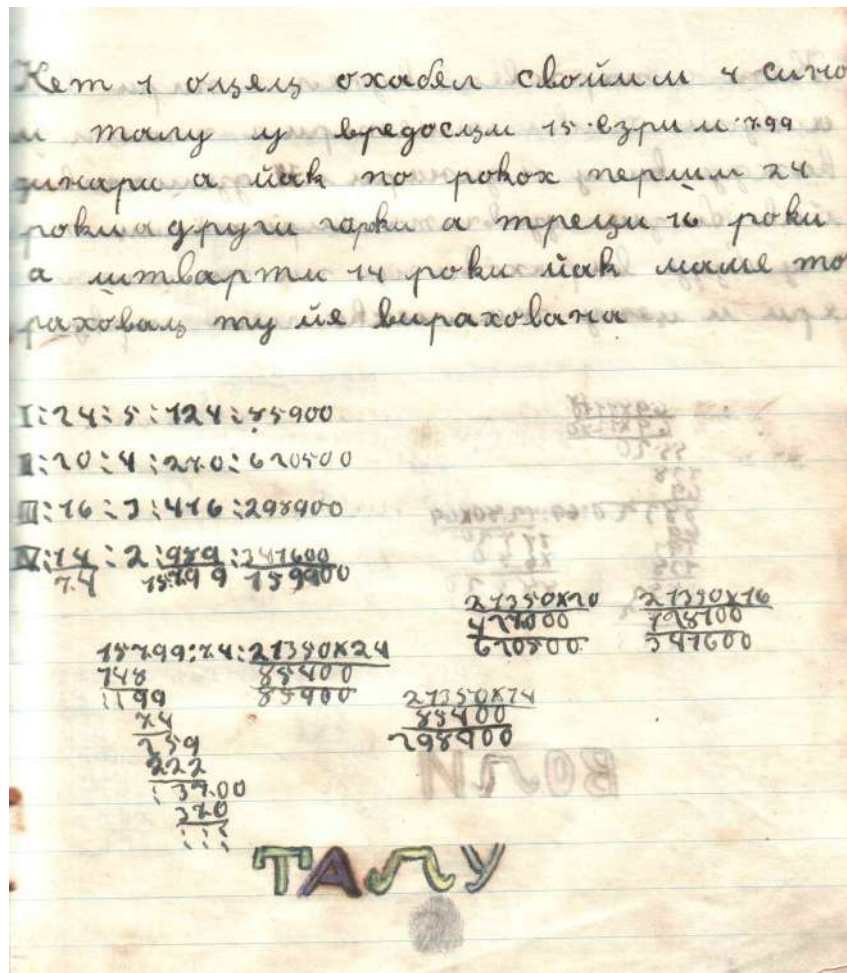 Кет 1 оцец охабел своїм 4 сино
и талу у вредосци 15 езри и 799
динари а йак по рокох перши 24
роки а други
а трецы 16 роки
а штварти 14 роки йак маме то
раховац ту йе вирахована
I:24:5:124:85900
II:20:4:270:620500
III:16:3:416:298900
IV:14:2:989:341600
74 15799 159900
21350x20 21350x16
427000
620500 341600
15799:74:21350x24
748 85400
1199 85900
74
259
222
3700
370
21350x14
85400
298900
ВОЛИ
ТАЛУ